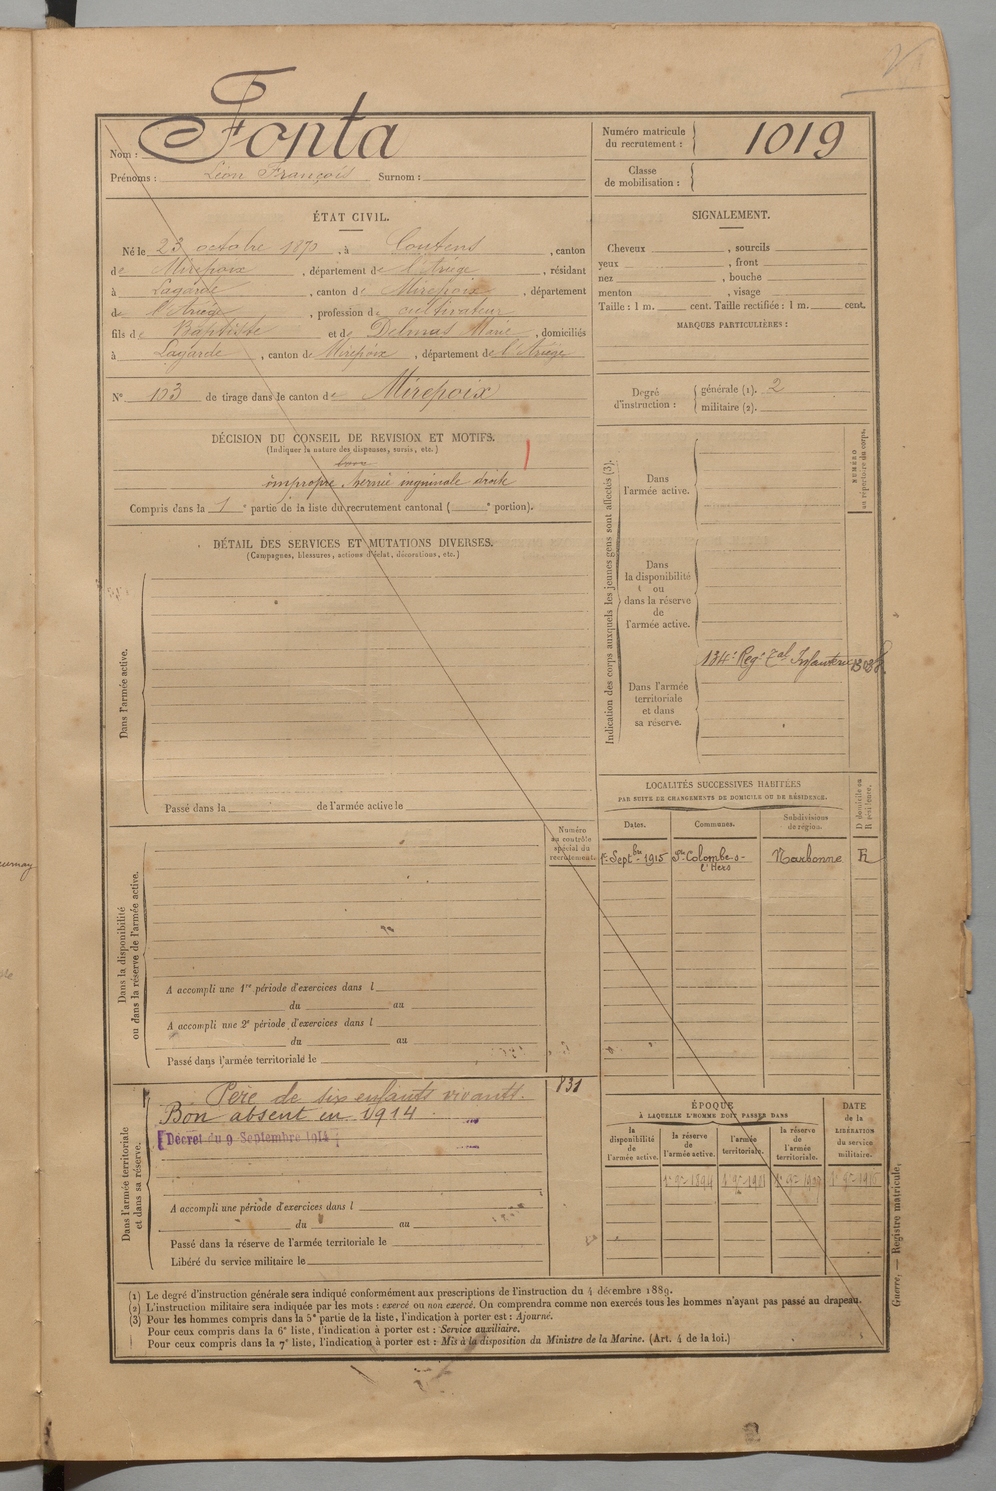 Nom : Fonta
Prénoms : Léon François Surnom :
Numéro matricule du recrutement : 1019
Classe de mobilisation :
ÉTAT CIVIL.
Né le 23 octobre 1870, à Coutens, canton
de Mirepoix, département de l'Ariège, résidant
à Lagarde, canton de Mirepoix, département
de l'Ariège, profession de cultivateur
fils de Baptiste et de Delmas Marie, domiciliés
à Lagarde, canton de Mirepoix, département de l'Ariège
N° 123 de tirage dans le canton de Mirepoix
SIGNALEMENT.
Cheveux , sourcils
yeux , front
nez , bouche
menton , visage
Taille : 1 m. cent. Taille rectifiée : 1 m. cent.
MARQUES PARTICULIÈRES :
Degré d'instruction : générale (1). 2
militaire (2).
DÉCISION DU CONSEIL DE REVISION ET MOTIFS.
(Indiquer la nature des dispenses, sursis, etc.)
bon
impropre hernie inguinale droite
Compris dans la 1e partie de la liste du recrutement cantonal ( e portion).
DÉTAIL DES SERVICES ET MUTATIONS DIVERSES.
(Campagnes, blessures, actions d'éclat, décorations, etc.)
Dans l'armée active.
Passé dans la de l'armée active le
Indication des corps auxquels les jeunes gens sont affectés (3).
NUMÉRO au répertoire du corps.
Dans l'armée active.
Dans la disponibilité ou dans la réserve de l'armée active.
Dans l'armée territoriale et dans sa réserve.
134e Regt Tal Infanterie
LOCALITÉS SUCCESSIVES HABITÉES
PAR SUITE DE CHANGEMENTS DE DOMICILE OU DE RÉSIDENCE.
Dates. Communes. Subdivisions de région. D domicile ou R résidence.
Septbre 1915 Ste Colombe-s-l'Hers Narbonne R
Numéro au contrôle spécial du recrutement.
Dans la disponibilité ou dans la réserve de l'armée active.
A accompli une 1re période d'exercices dans l
du au
A accompli une 2e période d'exercices dans l
du au
Passé dans l'armée territoriale le
831
Dans l'armée territoriale et dans sa réserve.
Père de six enfants vivants.
Bon absent en 1914
Décret du 9 Septembre 1914
A accompli une période d'exercices dans l
du au
Passé dans la réserve de l'armée territoriale le
Libéré du service militaire le
ÉPOQUE
À LAQUELLE L'HOMME DOIT PASSER DANS
la disponibilité de l'armée active. la réserve de l'armée active. l'armée territoriale. la réserve de l'armée territoriale.
DATE de la LIBÉRATION du service militaire.
(1) Le degré d'instruction générale sera indiqué conformément aux prescriptions de l'instruction du 4 décembre 1889.
(2) L'instruction militaire sera indiquée par les mots : exercé ou non exercé. On comprendra comme non exercés tous les hommes n'ayant pas passé au drapeau.
(3) Pour les hommes compris dans la 5e partie de la liste, l'indication à porter est : Ajourné.
Pour ceux compris dans la 6e liste, l'indication à porter est : Service auxiliaire.
Pour ceux compris dans la 7e liste, l'indication à porter est : Mis à la disposition du Ministre de la Marine. (Art. 4 de la loi.)
Guerre. — Registre matricule.